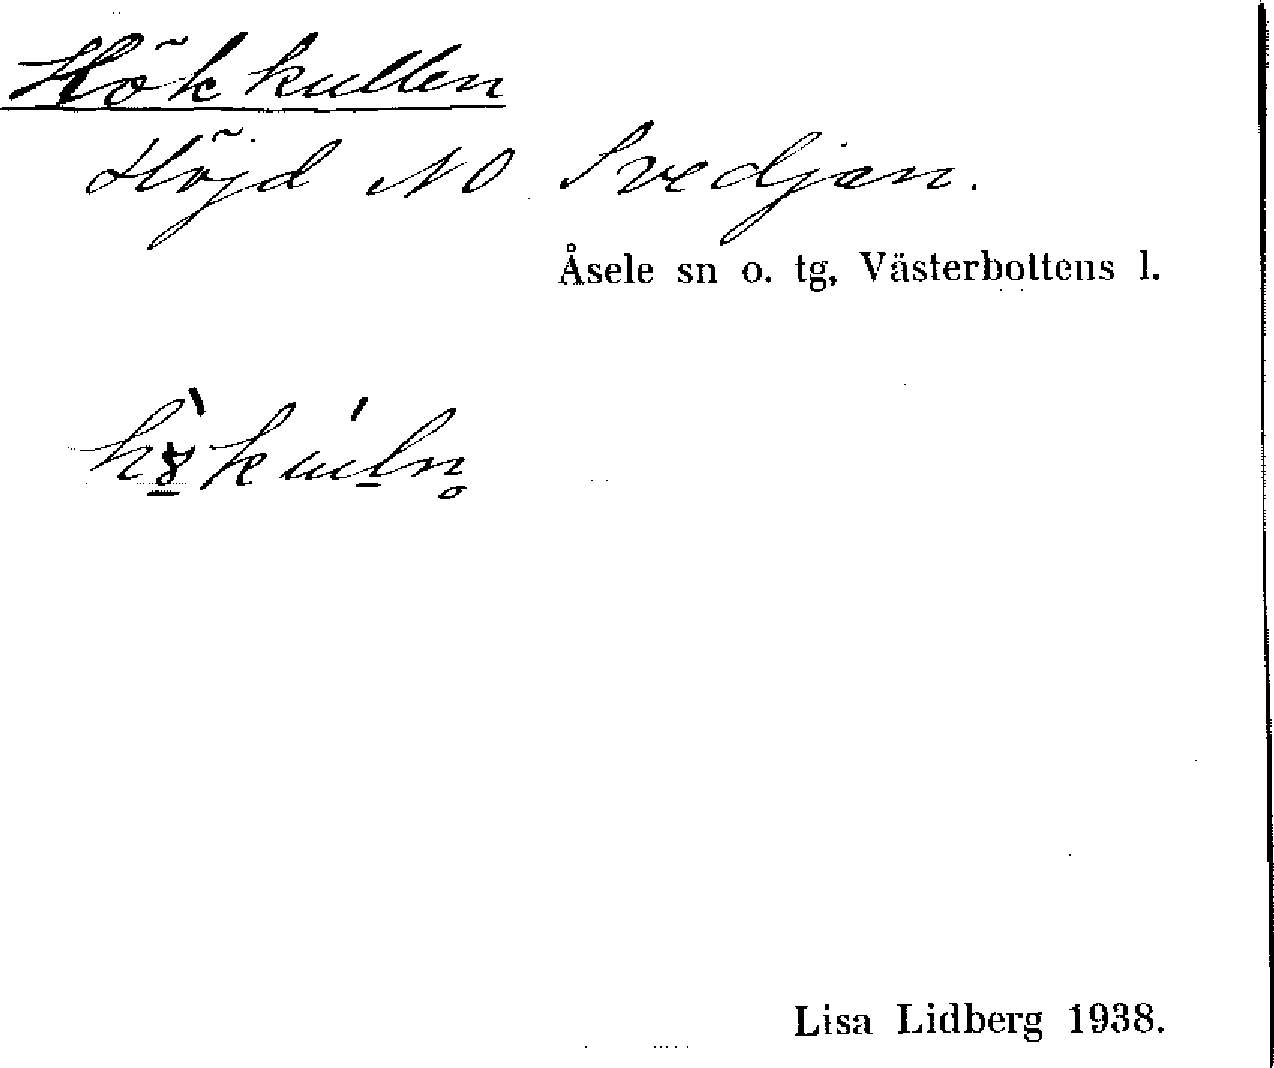 Hökkullen
Höjd NO Svedjan.
Åsele sn o. tg, Västerbottens l.
Lisa Lidberg 1938.